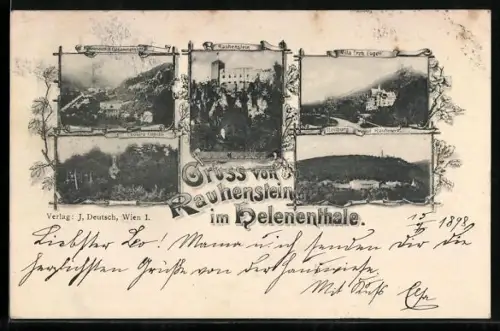 Rauhenstein
Villa Erzh. Eugen
Gruss von
Rauhenstein
im Helenenthale.
Verlag: J. Deutsch, Wien I.
1898
Liebster Leo! Mama u ich senden Dir die
herzlichsten Grüße von der Hauswiese.
Mit Kuß Elsa